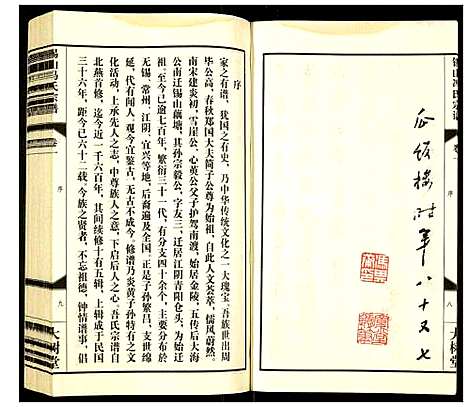 錫山馮氏宗譜 卷一
序
八
大樹堂
瓜飯樓 時年八十又七
錫山馮氏宗譜 卷一
序
九
大樹堂
序
家之有譜，猶國之有史，乃中华传统文化之一大瑰宝。吾族世出周
毕公高，春秋郑国大夫简子公尊为始祖，自此人文荟萃，儒风蔚然。
南宋建炎初，雪崖公、心英公父子护驾南渡，始居金陵，五传后大海
公南迁锡山藕塘，其孙宗毅公，字友三，迁居江阴青阳仓头，为始迁
祖。至今已逾七百年，繁衍三十一代，有分支四十余，主要分布于
无锡、常州、江阴、宜兴等地，后裔遍及全国。正是子孙繁昌，支世绵
延，代有闻人。观今宜鉴古，无古不成今。修谱乃炎黄子孙特有之文
化活动，上承先人之志，中尊族人之意，下启后人之心。吾氏宗谱自
北燕首修，迄今近一千六百年，其间续修十有五辑，上辑成于民国
三十六年，距今已六十二载。今族之贤者，不忘祖德，钟情谱事，倡